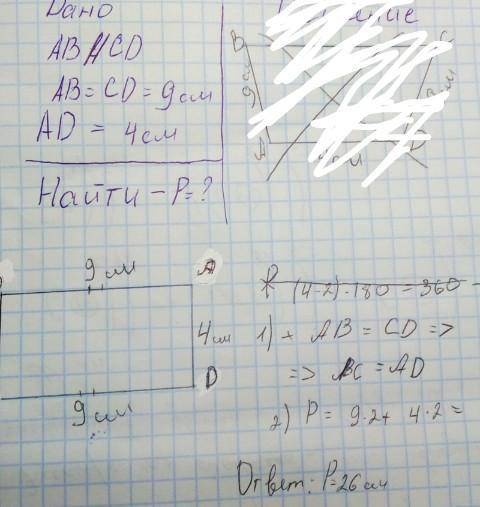 Дано
AB ∥ CD
AB = CD = 9 см
AD = 4 см
Найти – P = ?
B
9 см
A
9 см
A
4 см
D
9 см
(4-2)·180 = 360
1) AB = CD =>
=> BC = AD
2) P = 9·2 + 4·2 =
Ответ: P = 26 см